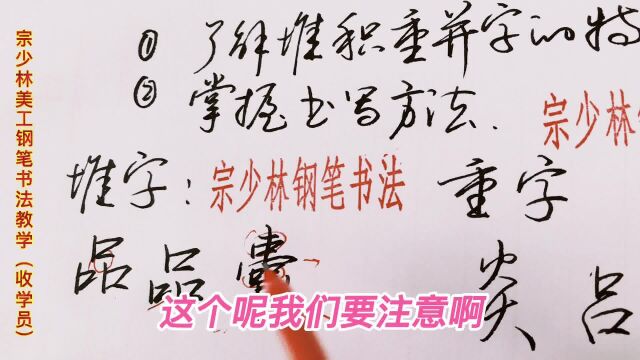 宗少林美工钢笔书法教学（收学员）
① 了解堆积重并字的特
② 掌握书写方法.
宗少林
堆字：宗少林钢笔书法 重字
品 品 炎 吕
这个呢我们要注意啊